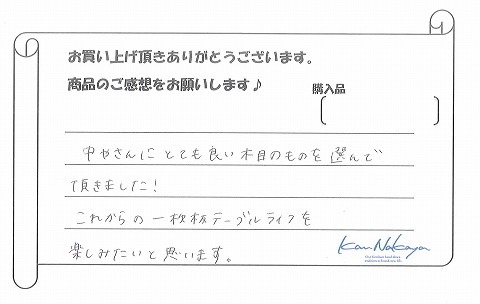 お買い上げ頂きありがとうございます。
商品のご感想をお願いします♪
購入品
中やさんにとても良い木目のものを選んで
頂きました！
これからの一枚板テーブルライフを
楽しみたいと思います。
Kan Nakaya